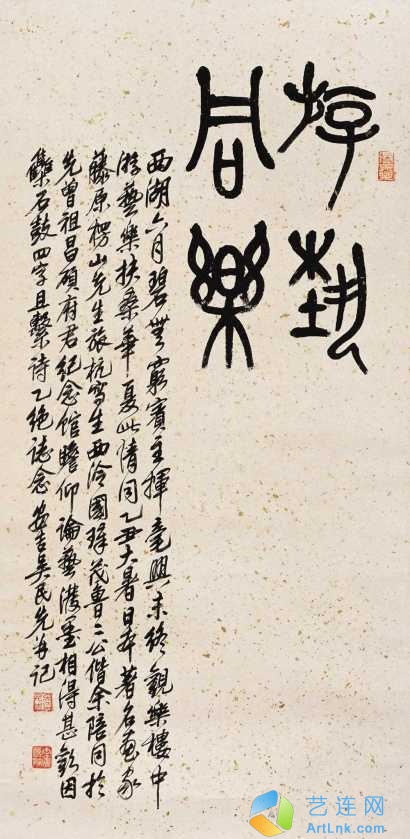 游藝
同樂
西湖六月碧無窮賓主揮毫興未終觀樂樓中
游藝樂扶桑華夏此情同乙丑大暑日本著名画家
藤原楞山先生旅杭寫生西泠國璋茂魯二公偕余陪同於
先曾祖昌碩府君紀念馆瞻仰論藝潑墨相得甚歡因
集石鼓四字且繫詩乙絕誌念安吉吳民先并記
艺连网
ArtLnk.com